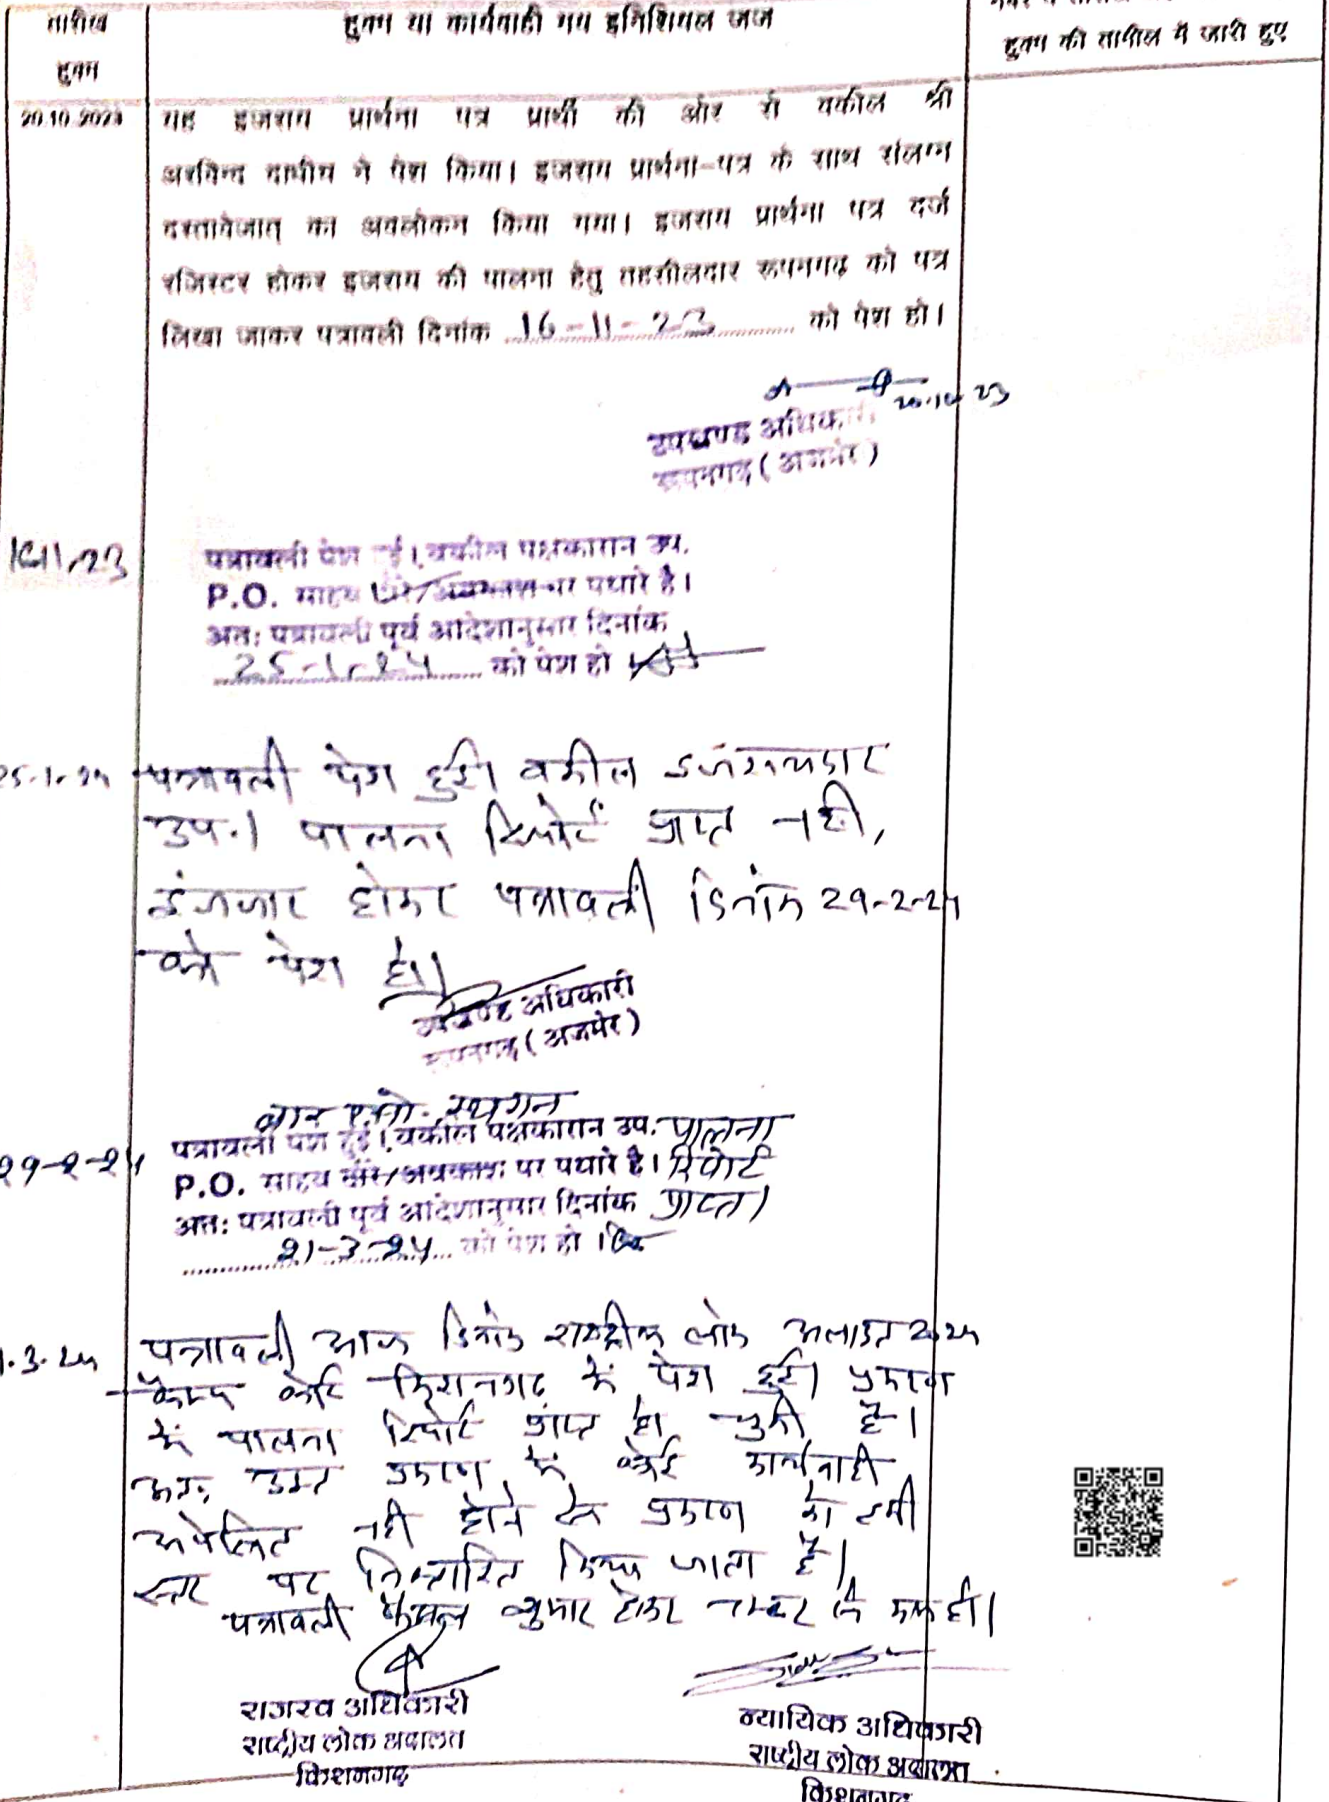 तारीख हुक्म या कार्यवाही मय इनिशियल जज
हुक्म हुक्म की तामील में जारी हुए
20.10.2023 यह इजराय प्रार्थना पत्र प्रार्थी की ओर से वकील श्री
अरविन्द दाधीच ने पेश किया। इजराय प्रार्थना-पत्र के साथ संलग्न
दस्तावेजात् का अवलोकन किया गया। इजराय प्रार्थना पत्र दर्ज
रजिस्टर होकर इजराय की पालना हेतु तहसीलदार रूपनगढ़ को पत्र
लिखा जाकर पत्रावली दिनांक 16-11-23 को पेश हो।
20.10.23
उपखण्ड अधिकारी
रूपनगढ़ (अजमेर)
16-11-23 पत्रावली पेश हुई। वकील पक्षकारान उप.
P.O. साहब दौरे/अवकाश पर पधारे है।
अतः पत्रावली पूर्व आदेशानुसार दिनांक
25-1-24 को पेश हो
25-1-24 पत्रावली पेश हुई। वकील इजरायदार
उप.। पालना रिपोर्ट प्राप्त नही,
इंतजार होकर पत्रावली दिनांक 29-2-24
को पेश हो।
उपखण्ड अधिकारी
रूपनगढ़ (अजमेर)
स्थगन
29-2-24 पत्रावली पेश हुई। वकील पक्षकारान उप. पालना
P.O. साहब दौरे/अवकाश पर पधारे है। रिपोर्ट
अतः पत्रावली पूर्व आदेशानुसार दिनांक प्राप्त।
21-3-24 को पेश हो।
.3.24 पत्रावली आज दिनांक राष्ट्रीय लोक अदालत 2024
कैम्प कोर्ट किशनगढ़ में पेश हुई। प्रकरण
में पालना रिपोर्ट प्राप्त हो चुकी है।
अतः उक्त प्रकरण में कोई कार्यवाही
अपेक्षित नही होने से प्रकरण को इसी
स्तर पर निस्तारित किया जाता है।
पत्रावली फैसल शुमार होकर नम्बर से कम हो।
राजस्व अधिकारी न्यायिक अधिकारी
राष्ट्रीय लोक अदालत राष्ट्रीय लोक अदालत
किशनगढ़ किशनगढ़